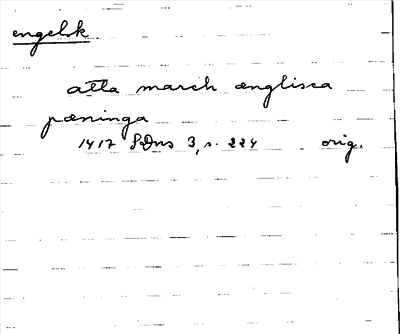 engelsk
atta march ænglisca
pæninga
1417 SDns 3, s. 224 orig.